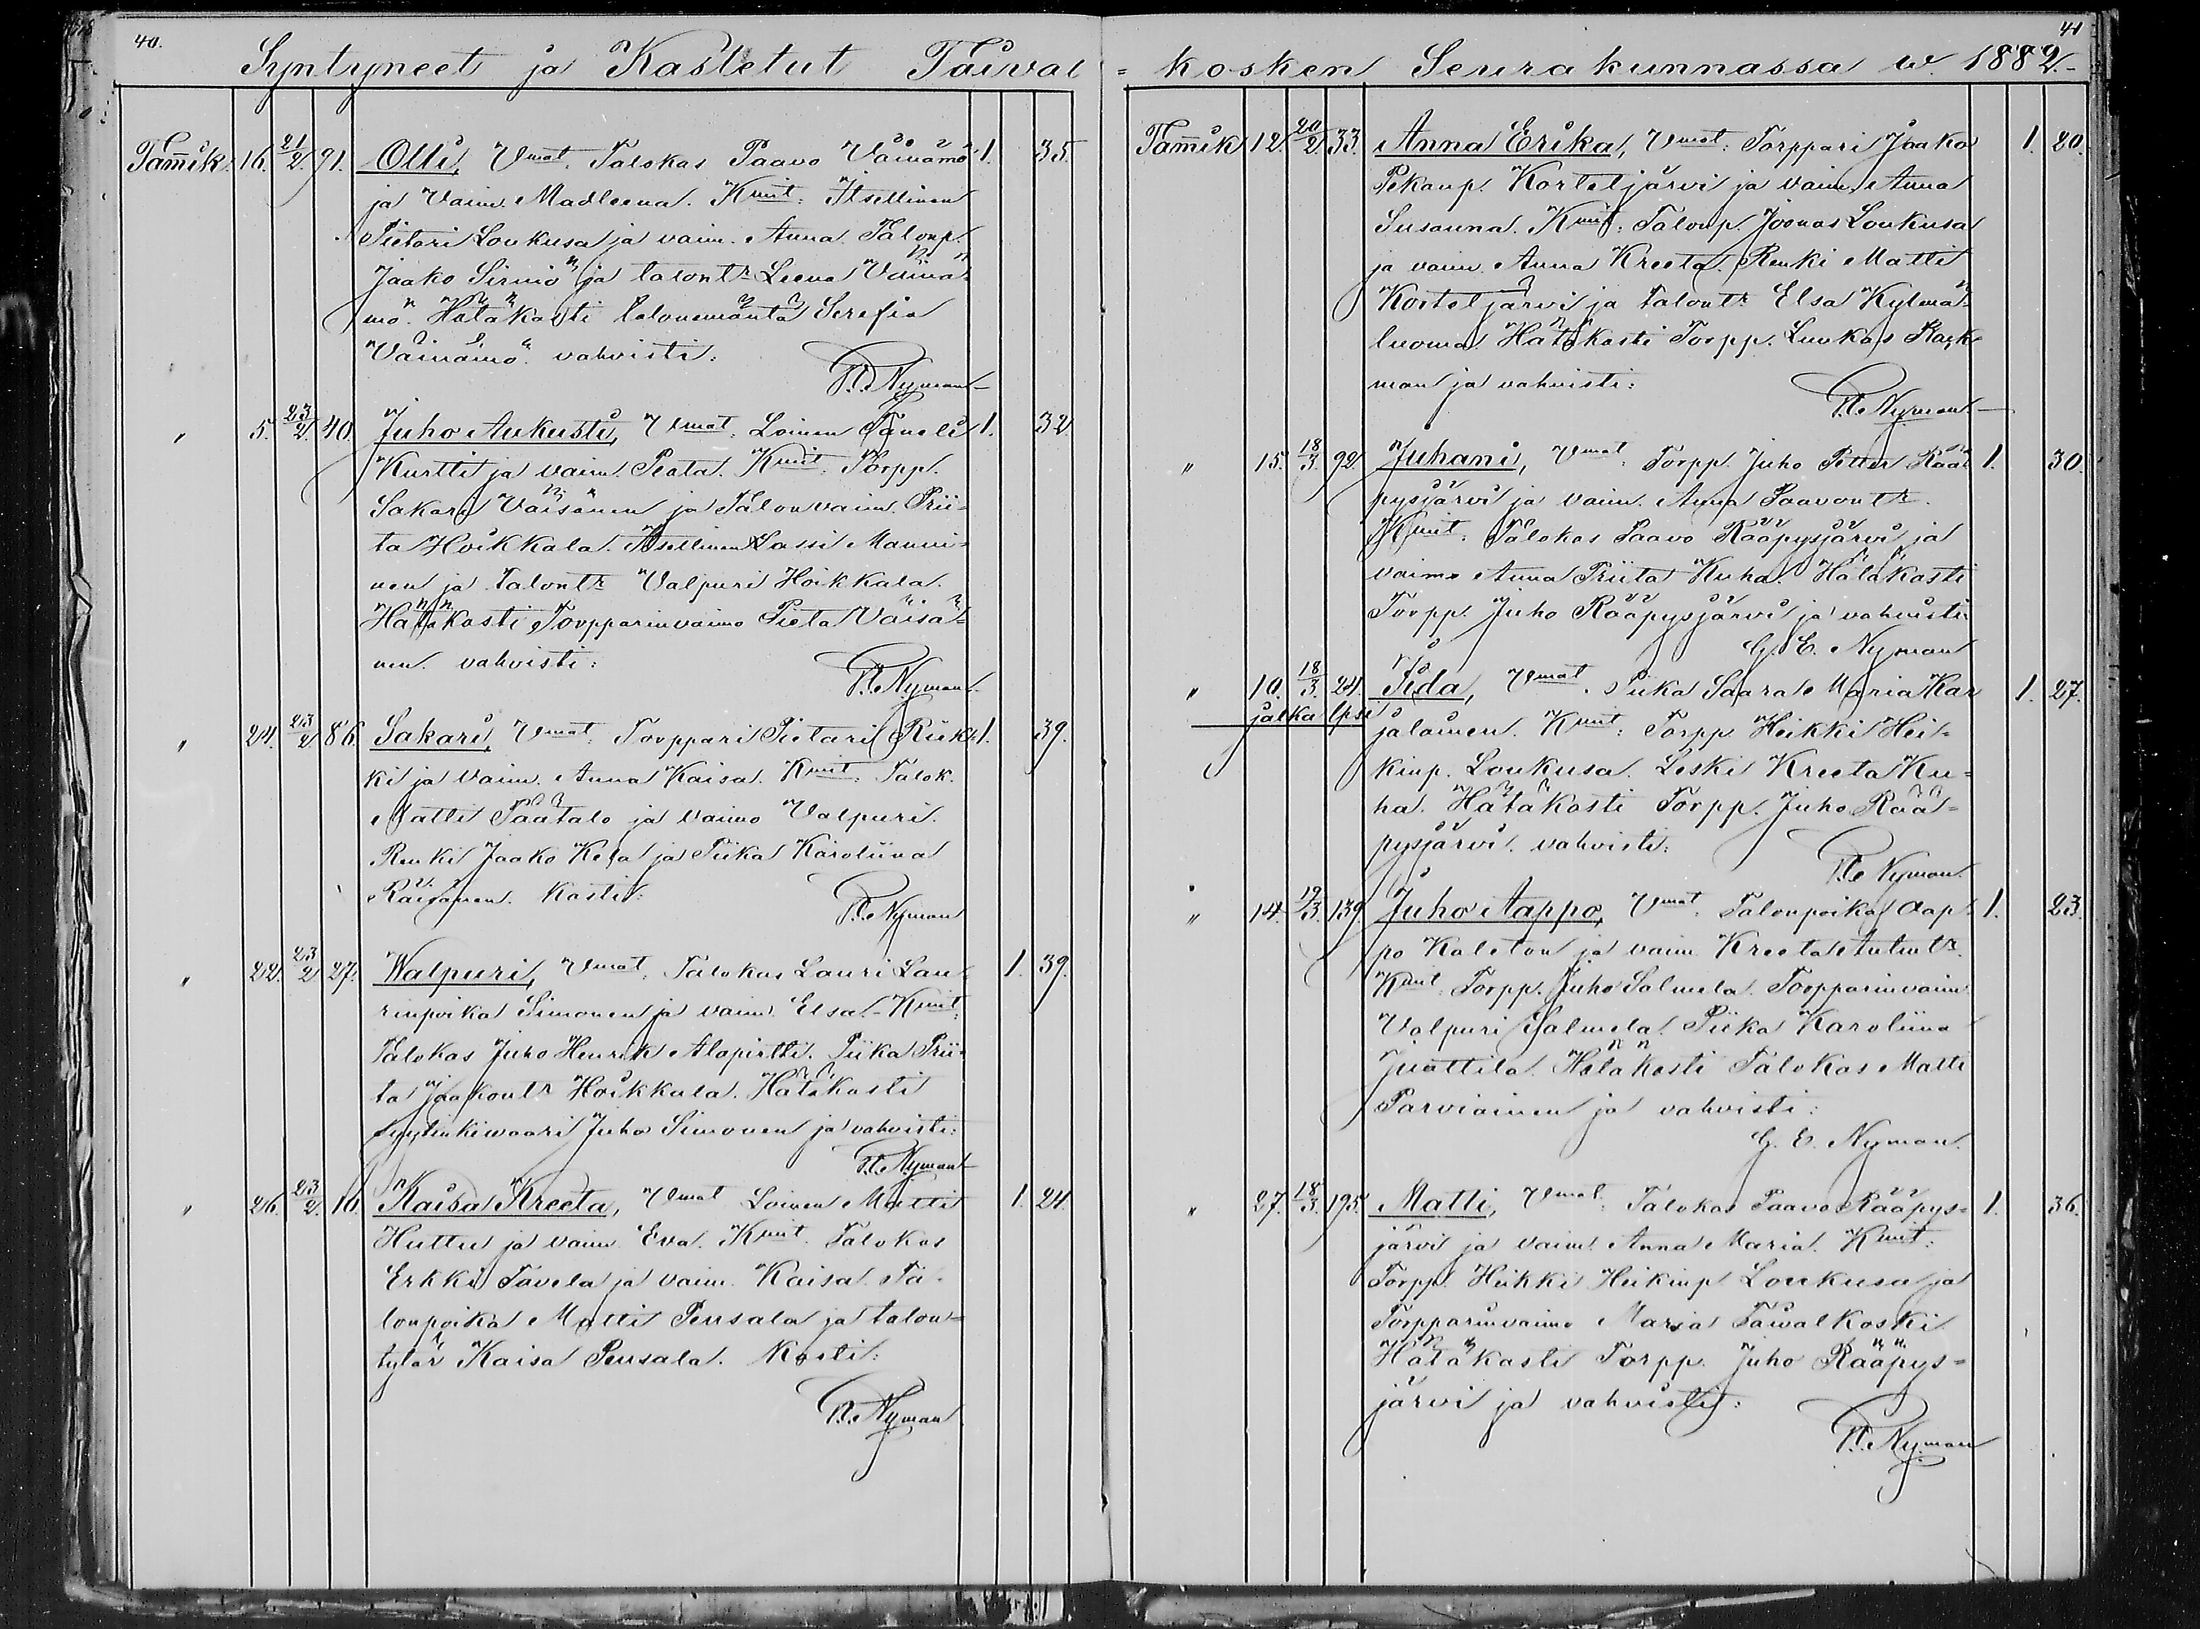 40.
Syntyneet ja Kastetut Taival
Tamik. 16. 21/2. 91. Olli, Vmat. Talokas Paavo Väinämö 1. 35.
ja vaim. Madleena. Kmit: Itsellinen
Pietari Loukusa ja vaim. Anna. Talonp.
Jaako Sirniö ja talontr Leena Väinä-
mö. Hätäkasti talonemäntä Serefia
Väinämö. vahvisti:
Nyman
" 5. 23/2. 40. Juho Aukusti, Vmat: Loinen Taneli 1. 32.
Kurtti ja vaim. Peata. Kmit. Torpp.
Sakari Väisänen ja Talonvaim. Prii-
ta Hoikkala. Itsellinen Lassi Manni-
nen ja talontr Valpuri Hoikkala.
Hätäkasti Torpparinvaimo Pieta Väisä-
nen. vahvisti:
Nyman
" 24. 23/2 86. Sakari, Vmat: Torppari Pietari Riek- 1. 39.
ki ja vaim. Anna Kaisa. Kmit: Talok.
Matti Päätalo ja vaimo Valpuri.
Renki Jaako Kela ja Piika Karoliina
Räisänen. Kasti:
Nyman
" 22. 23/2 27. Walpuri, Vmat: Talokas Lauri Lau- 1. 39.
rinpoika Simonen ja vaim. Elsa. Kmit:
Talokas Juho Henrik Alapirtti. Piika Prii-
ta Jaakontr Hoikkala. Hätäkasti
Juho Simonen ja vahvisti:
Nyman
" 26. 23/2. 16. Kaisa Kreeta, Vmat Loinen Matti 1. 24.
Huttu ja vaim Eva. Kmit. Talokas
Erkki Tavela ja vaim. Kaisa. Ta-
lonpoika Matti Pensala ja talon-
tytär Kaisa Pensala. Kasti:
Nyman
41
kosken Seurakunnassa w. 1882.
Tamik 12. 20/2 33. Anna Erika, Vmat: Torppari Jaako 1. 20.
Pekanp. Korteljärvi ja vaim. Anna
Susanna. Kmit: Talonp. Joonas Loukusa
ja vaim. Anna Kreeta. Renki Matti
Korteljärvi ja talontr Elsa Kylmä-
luoma. Hätäkasti Torpp. Luukas Rack-
man ja vahvisti:
Nyman
" 15. 18/3. 92. Juhani, Vmat: Torpp. Juho Petter Rää- 1. 30.
pysjärvi ja vaim. Anna Paavontr.
Kmit: Talokas Paavo Rääpysjärvi ja
vaimo Anna Priita Kuha. Hätäkasti
Torpp. Juho Rääpysjärvi ja vahvisti
G. E. Nyman
" 10. 18/3. 24. Iida, Vmat. Piika Saara Maria Kar- 1. 27.
jalka lpsi
jalainen. Kmit: Torpp. Heikki Hei-
kinp. Loukusa. Leski Kreeta Ku-
ha. Hätäkasti Torpp. Juho Rää-
pysjärvi. vahvisti:
Nyman.
" 14. 19/3 139. Juho Aappo, Vmat: Talonpoika Aap- 1. 23.
po Kaleton ja vaim. Kreeta Antintr.
Kmit: Torpp. Juho Salmela. Torpparinvaim.
Valpuri Salmela. Piika Karoliina
Juattila. Hätäkasti Talokas Matti
Parviainen ja vahvisti:
G. E. Nyman.
" 27. 18/3. 195. Matti, Vmat: Talokas Paavo Rääpys- 1. 36.
järvi ja vaim. Anna Maria. Kmit:
Torpp. Heikki Heikinp Loukusa ja
Torpparinvaimo Maria Taiwalkoski.
Hätäkasti Torpp. Juho Rääpys-
järvi ja vahvisti:
Nyman